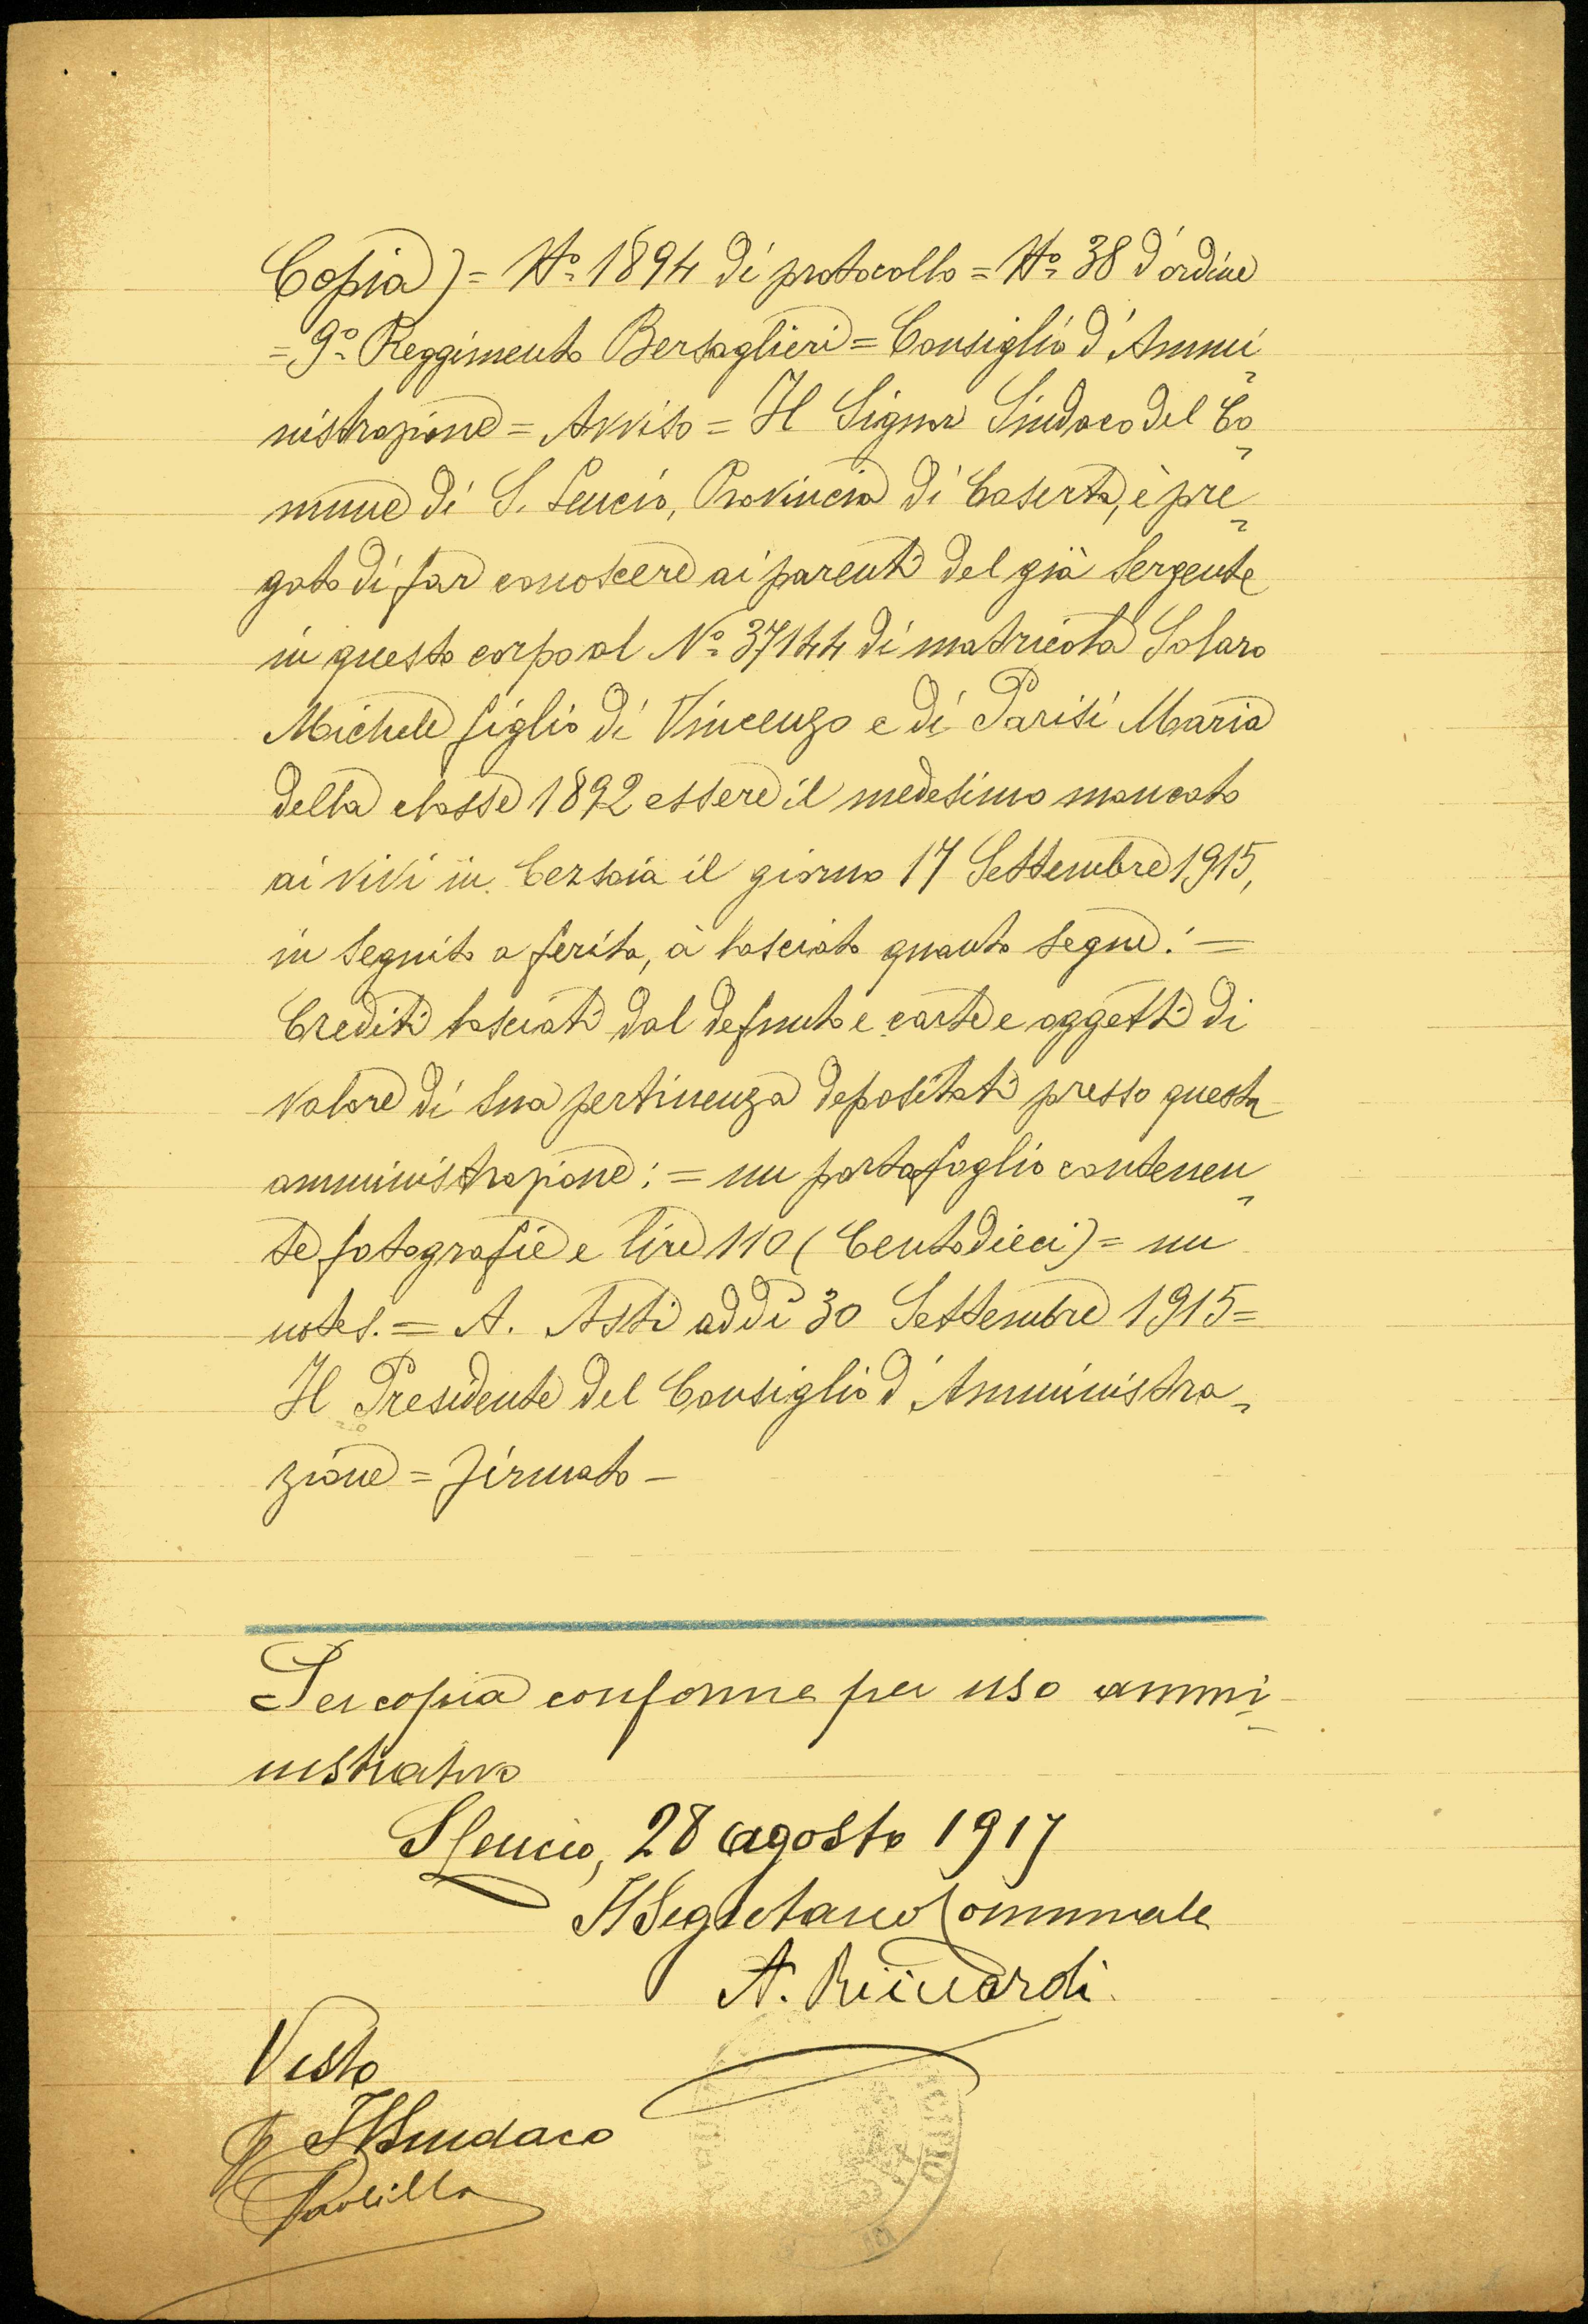 Copia) = N.° 1894 di protocollo = N.° 38 d'ordine
= 9.° Reggimento Bersaglieri = Consiglio d'Ammi„
nistrazione = Avviso = Il Signor Sindaco del Co„
mune di S. Leucio, Provincia di Caserta, è pre„
gato di far conoscere ai parenti del già Sergente
in questo corpo al N.° 37144 di matricola Solaro
Michele figlio di Vincenzo e di Parisi Maria
della classe 1892 essere il medesimo mancato
ai vivi in Cezsoia il giorno 17 Settembre 1915,
in seguito a ferita, à lasciato quanto segue: =
Crediti lasciati dal defunto e carte e oggetti di
valore di sua pertinenza depositati presso questa
amministrazione: = un portafoglio contenen„
te fotografie e lire 110 (Centodieci) = un
notes. = A. Asti addì 30 Settembre 1915 =
Il Presidente del Consiglio d'Amministra„
zione = firmato -
Per copia conforme per uso ammi„
nistrativo
S Leucio, 28 agosto 1917
Il Segretario Comunale
A. Ricciardi
Visto
Il Sindaco
Paolillo